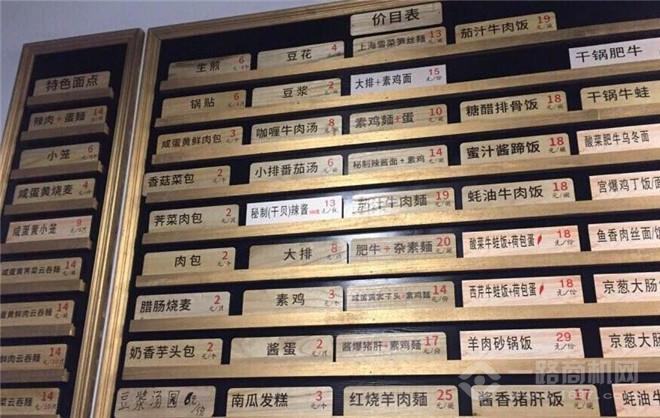 价目表
特色面点
辣肉+蛋麺 14
小笼 6
咸蛋黄烧麦 4
咸蛋黄小笼 9
咸蛋黄荠菜云吞麺 14
黄鲜肉云吞麺 14
鲜肉云吞麺 14
14
生煎 6
锅贴 6
咸蛋黄鲜肉包 3元/个
香菇菜包 2元/个
荠菜肉包 2元/个
肉包 2元/个
腊肠烧麦 2元/只
奶香芋头包 2元/个
豆浆汤圆 6元/份
豆花 4
豆浆 2
咖喱牛肉汤 8
小排番茄汤 6
秘制(干贝)辣酱 13
大排 8
素鸡 3
酱蛋 2
南瓜发糕 3元/个
上海雪菜笋丝麺 13
大排+素鸡面 15
素鸡麺+蛋 10
秘制辣酱面+素鸡 14
茄汁牛肉麺 19
肥牛+杂素麺 20
14
酱爆猪肝+素鸡麺 17
红烧羊肉麺 25
茄汁牛肉饭 19
糖醋排骨饭 18
蜜汁酱蹄饭 18
蚝油牛肉饭 18
酸菜牛蛙饭+荷包蛋 18元/份
西芹牛蛙饭+荷包蛋 18元/份
羊肉砂锅饭 29元/份
酱香猪肝饭 17
干锅肥牛
干锅牛蛙
酸菜肥牛乌冬面
宫爆鸡丁饭/面
鱼香肉丝面/饭
京葱大肠
京葱大肠
蚝油牛
一路商机网